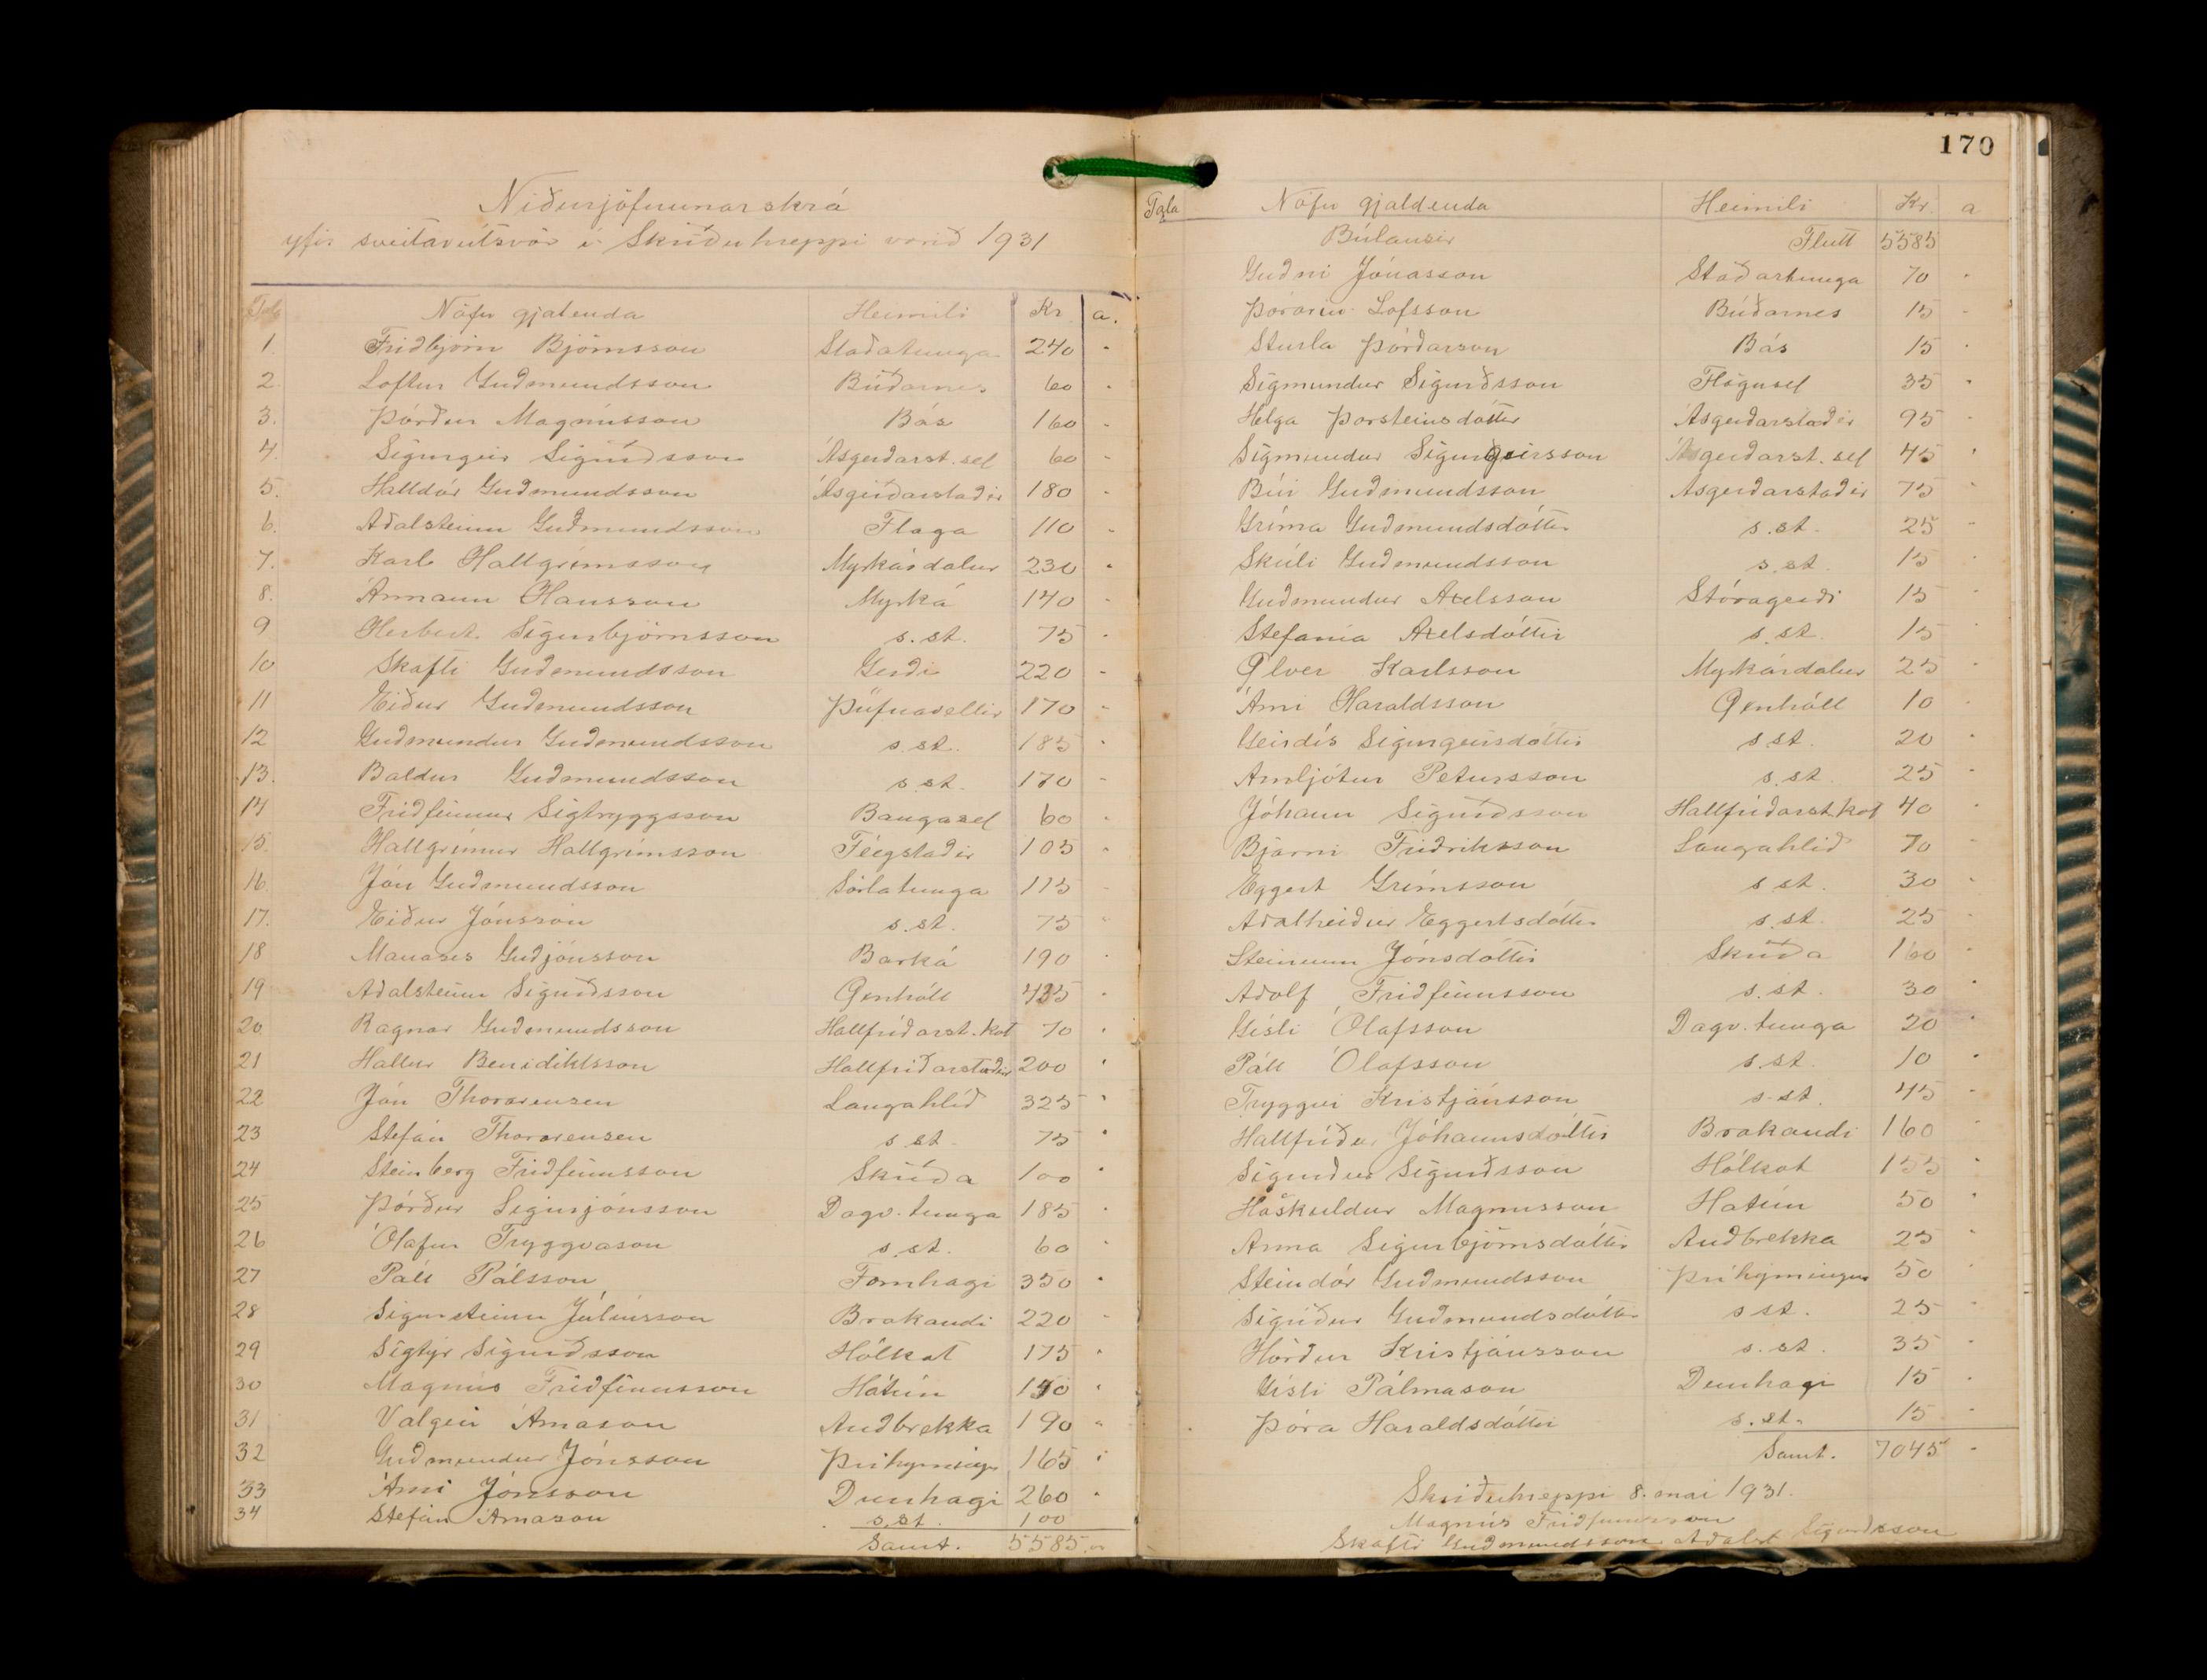 Niðurjöfnunarskrá
yfir sveitarútsvör í Skriðuhreppi vorið 1931
Tala Nöfn gjaldenda Heimili Kr. a.
1. Friðbjörn Björnsson Staðatunga 240 -
2. Loftur Guðmundsson Búðarnes 60 -
3. Þórður Magnússon Bás 160 -
4. Sigurgeir Sigurðsson Ásgerðarst. sel 60 -
5. Halldór Guðmundsson Ásgerðarstaðir 180 -
6. Aðalsteinn Guðmundsson Flaga 110 -
7. Karl Hallgrímsson Myrkárdalur 230 -
8. Ármann Hansson Myrká 140 -
9 Herbert Sigurbjörnsson s.st. 75 -
10 Skafti Guðmundsson Gerði 220 -
11 Eiður Guðmundsson Þúfnavellir 170 -
12 Guðmundur Guðmundsson s.st. 185 -
13. Baldur Guðmundsson s.st. 170 -
14 Friðfinnur Sigtryggsson Baugasel 60 -
15. Hallgrímur Hallgrímsson Féegstaðir 105 -
16. Jón Guðmundsson Sörlatunga 115 -
17. Eiður Jónsson s.st. 75 -
18 Manases Guðjónsson Barká 190 -
19 Aðalsteinn Sigurðsson Öxnhóll 435 -
20 Ragnar Guðmundsson Hallfríðarst. kot 70 -
21 Hallur Benidiktsson Hallfríðarstaðir 200 -
22 Jón Thorarensen Langahlíð 325 -
23 Stefán Thorarensen s.st. 75 -
24 Steinberg Friðfinnsson Skriða 100 -
25 Þórður Sigurjónsson Dagv. tunga 185 -
26 Ólafur Tryggvason s.st. 60 -
27 Páll Pálsson Fornhagi 350 -
28 Sigursteinn Júlíusson Brakandi 220 -
29 Sigtýr Sigurðsson Hólkot 175 -
30 Magnús Friðfinnsson Hátún 150 -
31 Valgeir Árnason Auðbrekka 190 -
32 Guðmundur Jónsson Þríhyrningur 165 -
33 Árni Jónsson Dunhagi 260 -
34 Stefán Árnason s.st. 100
Samt. 5585.00
170
Tala Nöfn gjaldenda Heimili Kr. a
Búlausir Flutt 5585
Guðni Jónasson Staðartunga 70 -
Þórarin Lofsson Búðarnes 15 -
Sturla Þórðarson Bás 15 -
Sigmundur Sigurðsson Flögusel 35 -
Helga Þorsteinsdóttir Ásgerðarstaðir 95 -
Sigmundur Sigurgeirsson Ásgerðarst. sel 45 -
Búi Guðmundsson Ásgerðarstaðir 75 -
Gríma Guðmundsdóttir s.st. 25 -
Skúli Guðmundsson s.st. 15 -
Guðmundur Axelsson Stóragerði 15 -
Stefanía Axelsdóttir s.st. 15 -
Ölver Karlsson Myrkárdalur 25 -
Árni Haraldsson Öxnhóll 10 -
Geirdís Sigurgeirsdóttir s.st. 20 -
Arnljótur Petursson s.st. 25 -
Jóhann Sigurðsson Hallfríðarst. kot 40 -
Bjarni Friðriksson Langahlíð 70 -
Eggert Grímsson s.st. 30 -
Aðalheiður Eggertsdóttir s.st. 25 -
Steinunn Jónsdóttir Skriða 160 -
Adolf Friðfinnsson s.st. 30 -
Gísli Ólafsson Dagv. tunga 20 -
Páll Ólafsson s.st. 10 -
Tryggvi Kristjánsson s.st. 45 -
Hallfríður Jóhannsdóttir Brakandi 160 -
Sigurður Sigurðsson Hólkot 155 -
Höskuldur Magnusson Hatún 50 -
Anna Sigurbjörnsdóttir Auðbrekka 25 -
Steindór Guðmundsson Þríhyrningur 50 -
Sigríður Guðmundsdóttir s.st. 25 -
Hörður Kristjánsson s.st. 35 -
Gísli Pálmason Dunhagi 15 -
Þóra Haraldsdóttir s.st. 15 -
Samt. 7045 -
Skriðuhreppi 8. maí 1931.
Magnús Friðfinnsson
Skafti Guðmundsson Aðalst Sigurðsson